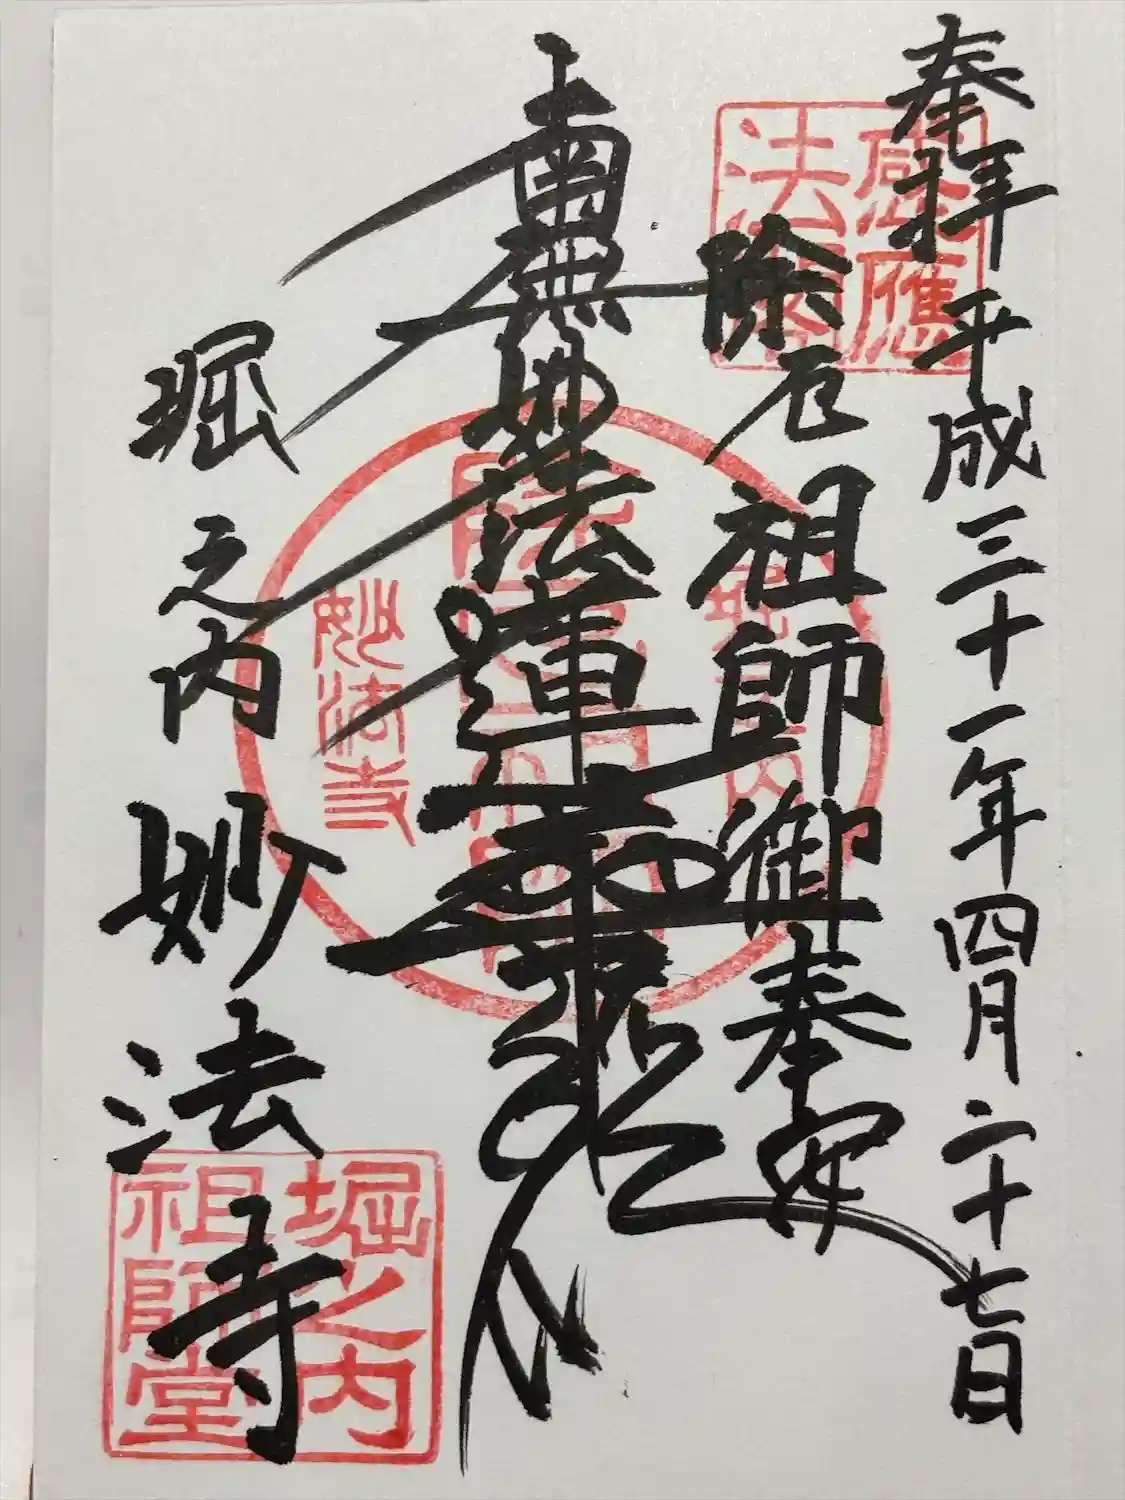 奉拝 平成三十一年四月二十七日
除厄祖師御奉安
南無妙法蓮華経
堀之内 妙法寺
感應
法
妙法寺
堀之内
祖師堂